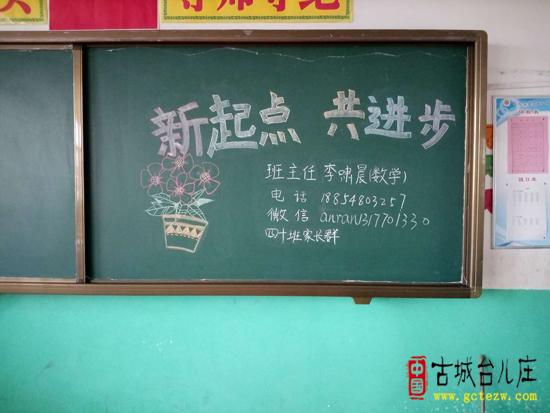 新起点 共进步
班主任 李啸晨(数学)
电话 18854803257
微信 anran317701330
四十班家长群
中国
古城台儿庄
www.gctezw.com